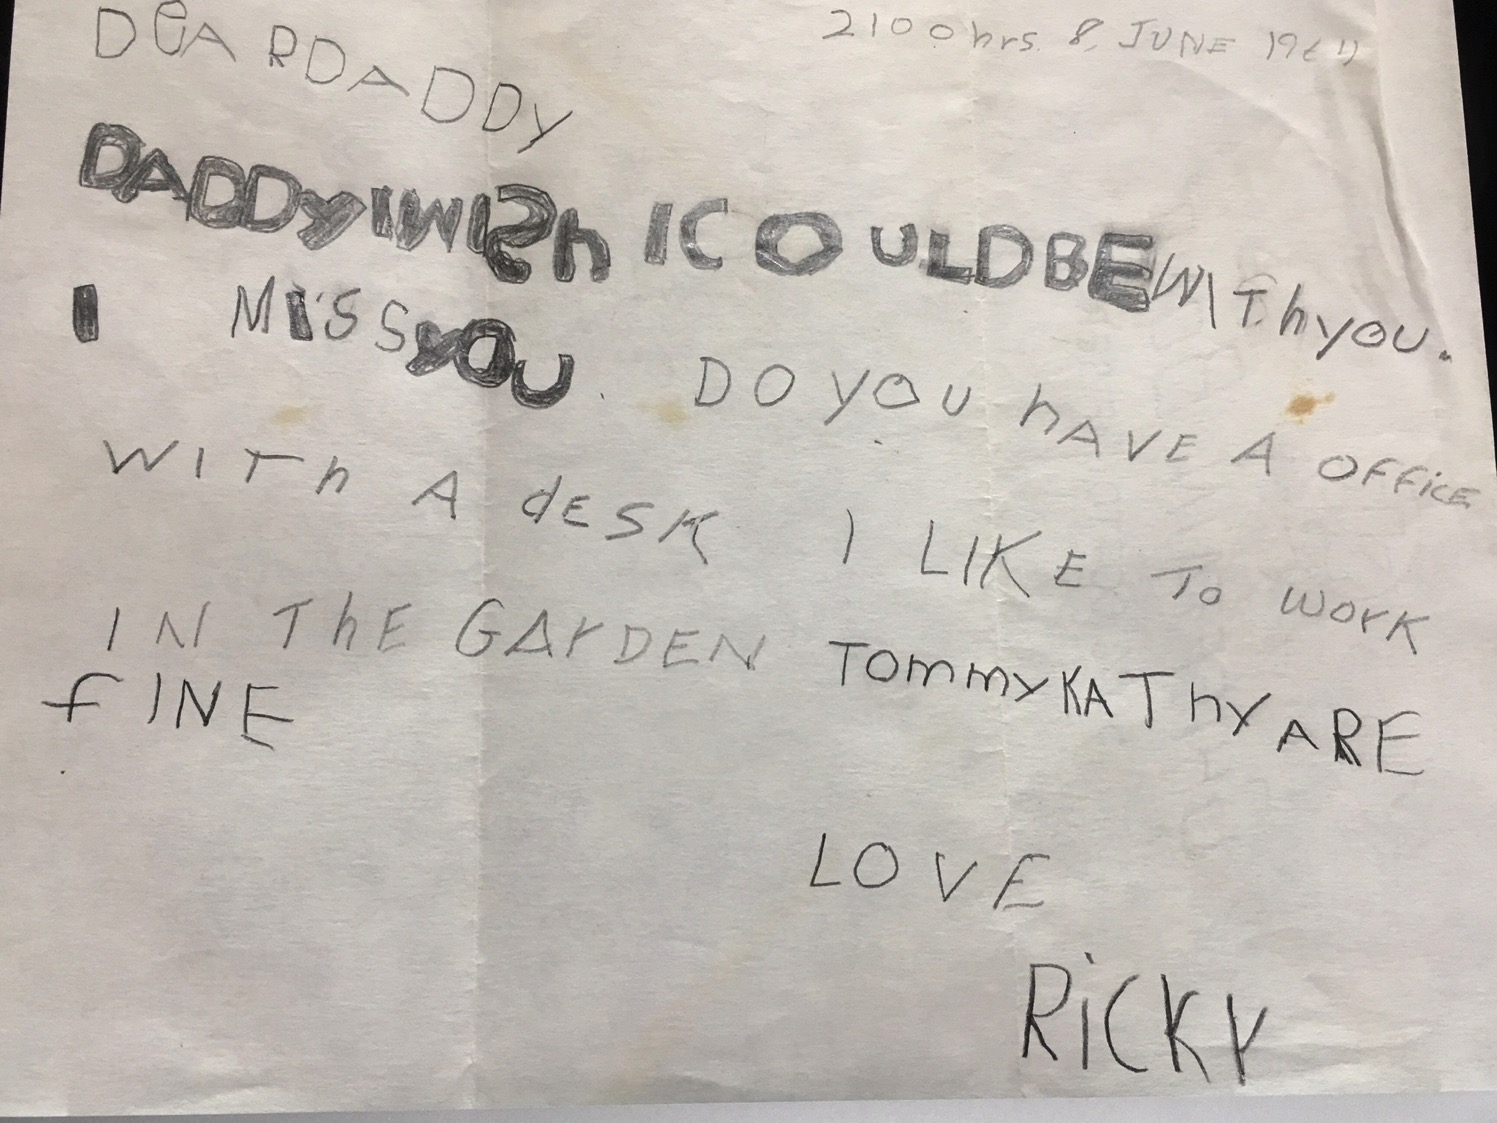 2100 hrs. 8, JUNE
DEAR DADDY
DADDY I WISh I COULD BE WITh yOU.
I MiSS yOU. DO yOU hAVE A OFFiCE
WITh A dESK I LIKE To WOrK
IN ThE GArDEN TOmmy KAThy ARE
fINE
LOVE
RiCKY